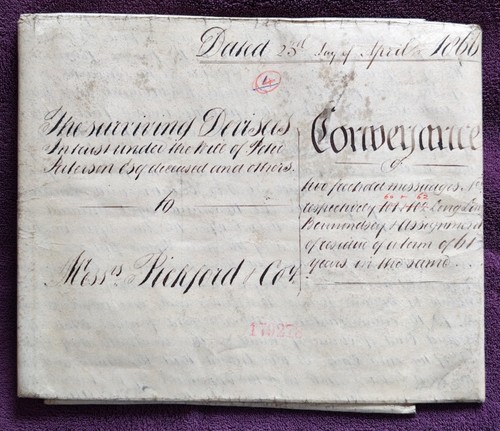 Dated 25th day of April 1866
4
The surviving Devisees
In trust under the Will of John
Peterson Esq deceased and others.
to
Messrs Pickford & Coy.
Conveyance
of
two freehold messuages Nos
respectively 101 & 102 Long Lane
Bermondsey & Assignment
of residue of a term of 61
years in the same.